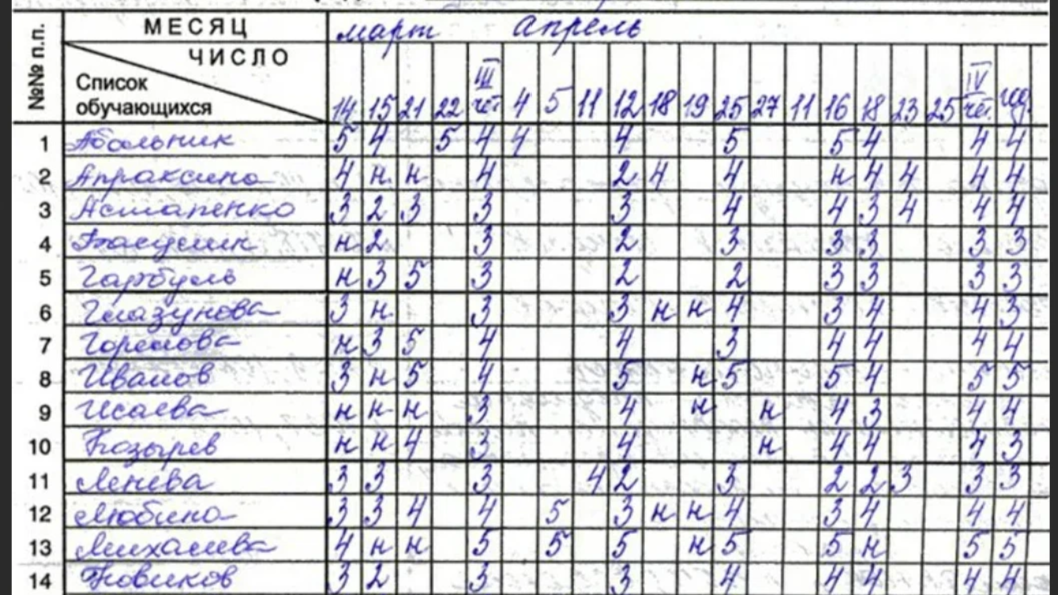 №№ п.п. МЕСЯЦ март апрель
ЧИСЛО
Список обучающихся 14 15 21 22 III чет. 4 5 11 12 18 19 25 27 11 16 18 23 25 IV чет. год.
1 5 4 5 4 4 4 5 5 4 4 4
2 Апраксина 4 н н 4 2 4 4 н 4 4 4 4
3 Астапенко 3 2 3 3 3 4 4 3 4 4 4
4 н 2 3 2 3 3 3 3 3
5 Гарбуль н 3 5 3 2 2 3 3 3 3
6 Глазунова 3 н 3 3 н н 4 3 4 4 3
7 Горелова н 3 5 4 4 3 4 4 4 4
8 Иванов 3 н 5 4 5 н 5 5 4 5 5
9 Исаева н н н 3 4 н н 4 3 4 4
10 Козырев н н 4 3 4 н 4 4 4 3
11 Ленева 3 3 3 4 2 3 2 2 3 3 3
12 Любина 3 3 4 4 5 3 н н 4 3 4 4 4
13 Михалева 4 н н 5 5 5 н 5 5 н 5 5
14 Новиков 3 2 3 3 4 4 4 4 4